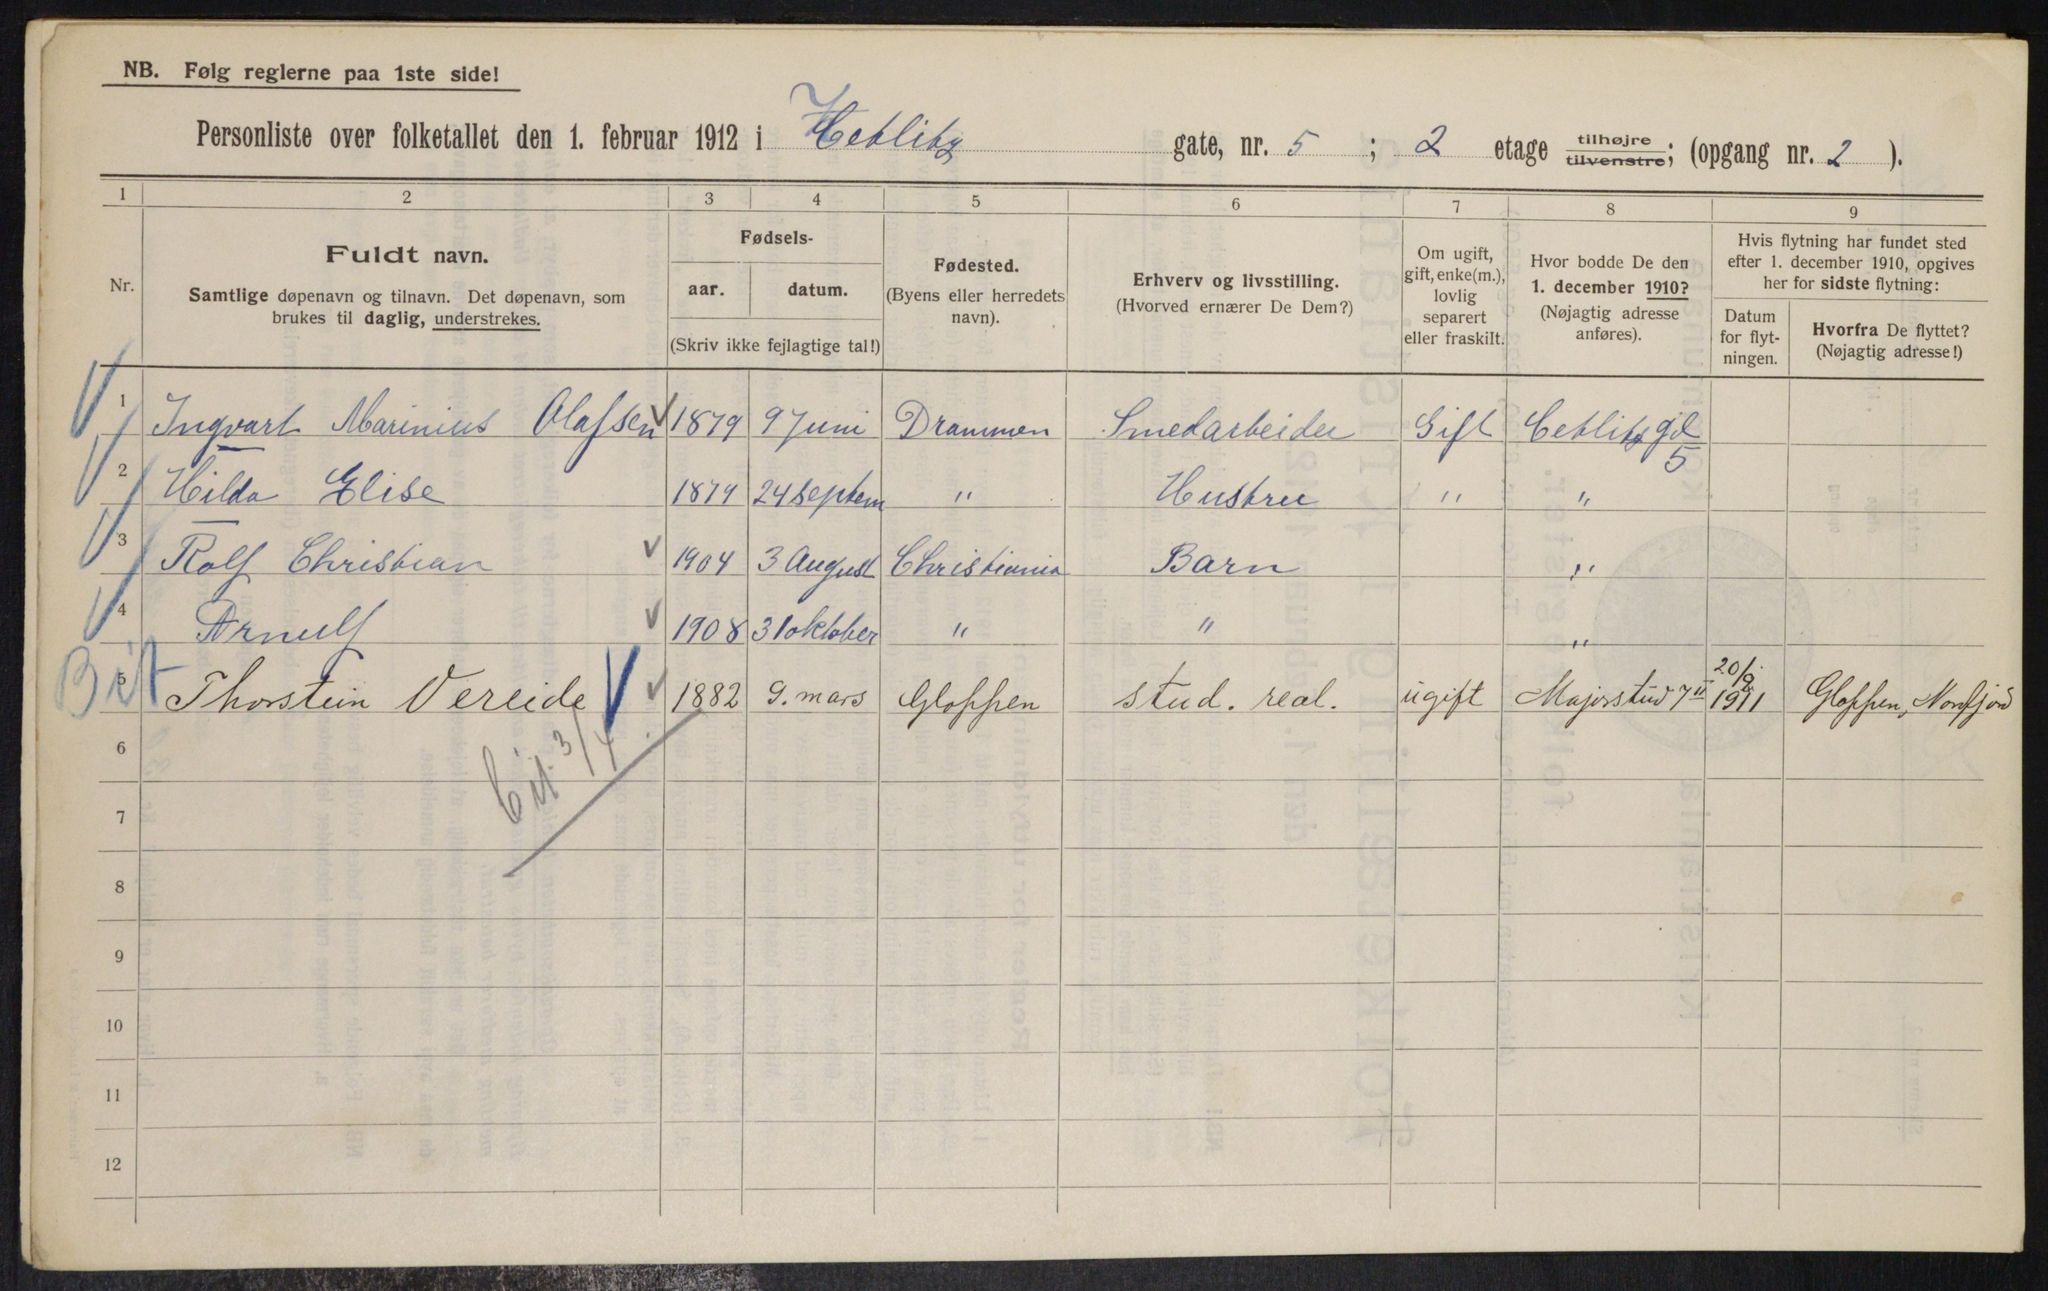 NB. Følg reglerne paa 1ste side!
Personliste over folketallet den 1. februar 1912 i Ceblitz gate, nr. 5 ; 2 etage tilhøjre tilvenstre; (opgang nr. 2 ).
1 2 3 4 5 6 7 8 9
Nr.
Fuldt navn.
Samtlige døpenavn og tilnavn. Det døpenavn, som
brukes til daglig, understrekes.
Fødsels-
aar. datum.
(Skriv ikke fejlagtige tal!)
Fødested.
(Byens eller herredets
navn).
Erhverv og livsstilling.
(Hvorved ernærer De Dem?)
Om ugift,
gift, enke(m.),
lovlig
separert
eller fraskilt.
Hvor bodde De den
1. december 1910?
(Nøjagtig adresse
anføres).
Hvis flytning har fundet sted
efter 1. december 1910, opgives
her for sidste flytning:
Datum
for flyt-
ningen.
Hvorfra De flyttet?
(Nøjagtig adresse!)
1 Ingvart Marinius Olafsen 1879 9 Juni Drammen Smedarbeider Gift Ceblitzgd 5
2 Hilda Elise 1874 24 Septem " Hustru " "
3 Rolf Christian 1904 3 August Christiania Barn "
4 Arnulf 1908 31 oktober " " "
Bit
5 Thorstein Vereide 1882 9. mars Gloppen stud. real. ugift Majorstuv 7 II 20/9 1911 Gloppen, Nordfjord
6
Bit. 3/4
7
8
9
10
11
12